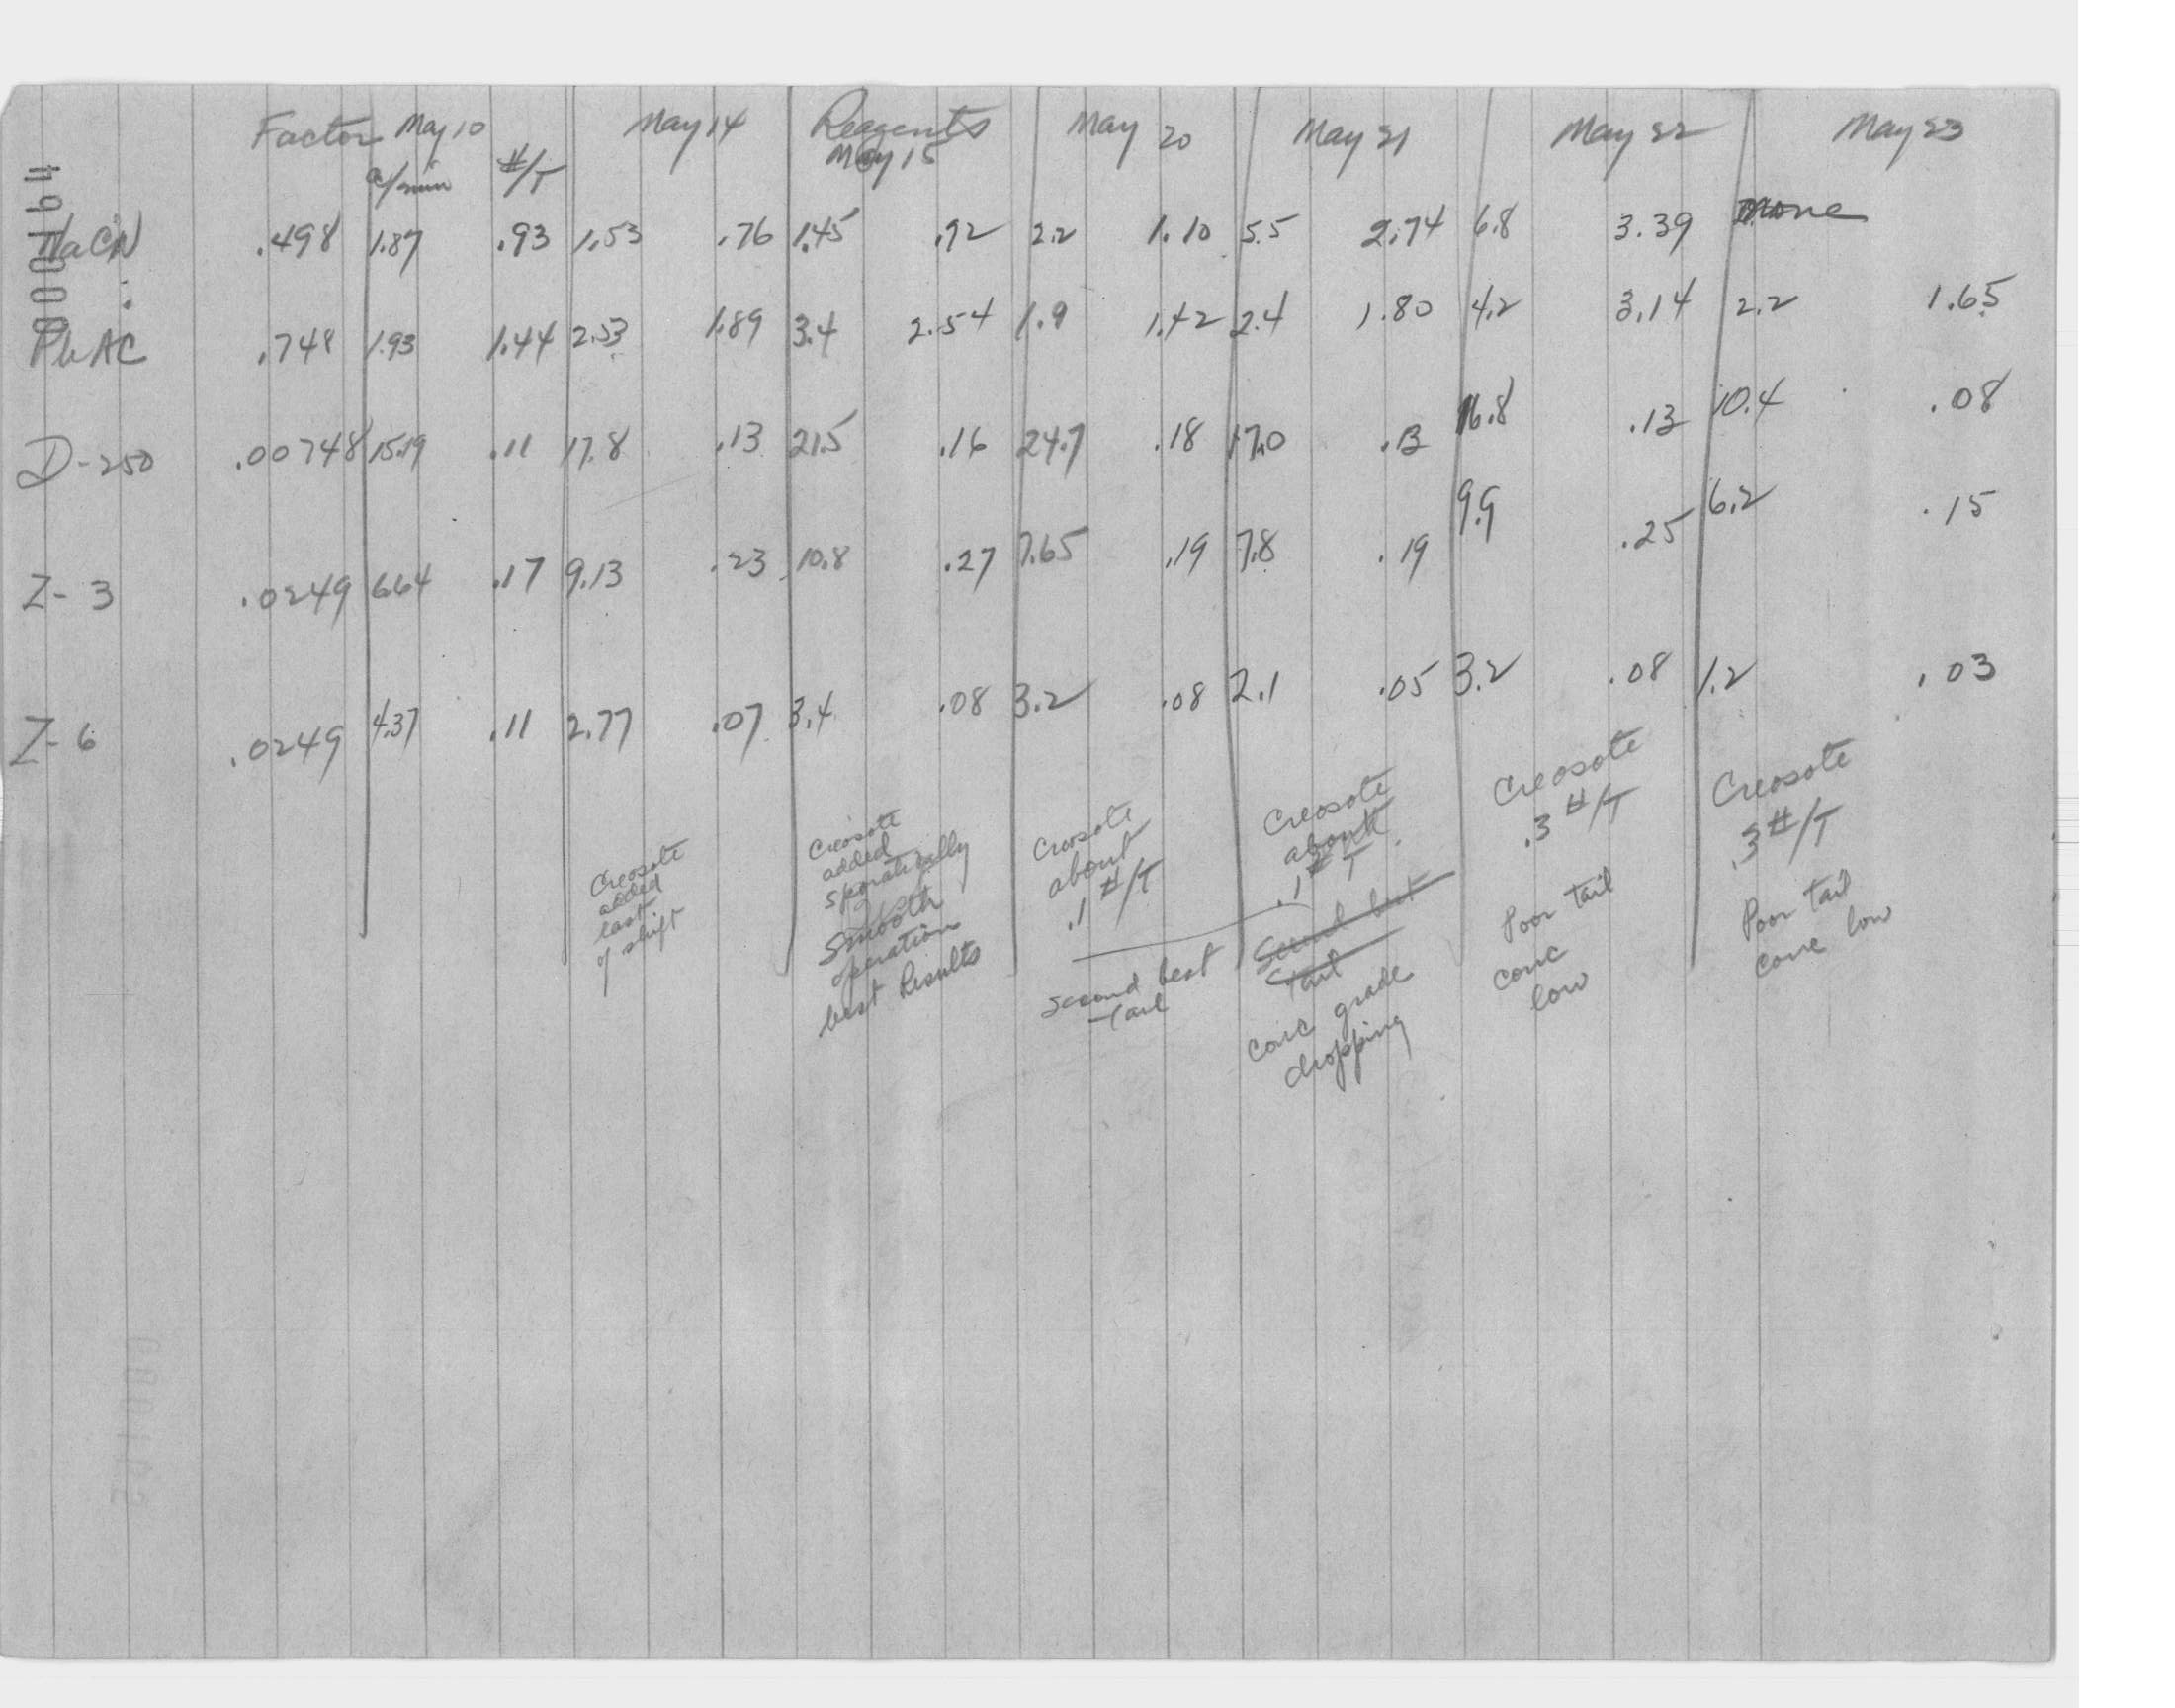 Factor May 10 May 14 Reagents May 20 May 21 May 22 May 23
May 15
cc/min #/T
NaCN .498 1.87 .93 1.53 .76 1.45 .72 2.2 1.10 5.5 2.74 6.8 3.39 none
PbAC .748 1.93 1.44 2.53 1.89 3.4 2.54 1.9 1.42 2.4 1.80 4.2 3.14 2.2 1.65
D-250 .00748 15.19 .11 17.8 .13 21.5 .16 24.7 .18 17.0 .13 16.8 .13 10.4 .08
Z-3 .0249 6.64 .17 9.13 .23 10.8 .27 7.65 .19 7.8 .19 9.9 .25 6.2 .15
Z-6 .0249 4.37 .11 2.77 .07 3.4 .08 3.2 .08 2.1 .05 3.2 .08 1.2 .03
Creosote
added
last
of shift
Creosote
added
sporatically
Smooth
operation
best Results
Creosote
about
.1 #/T
second best
tail
Creosote
about
.1 # T
Second best
tail
conc grade
dropping
Creosote
.3 #/T
Poor tail
conc
low
Creosote
.3 #/T
Poor tail
conc low